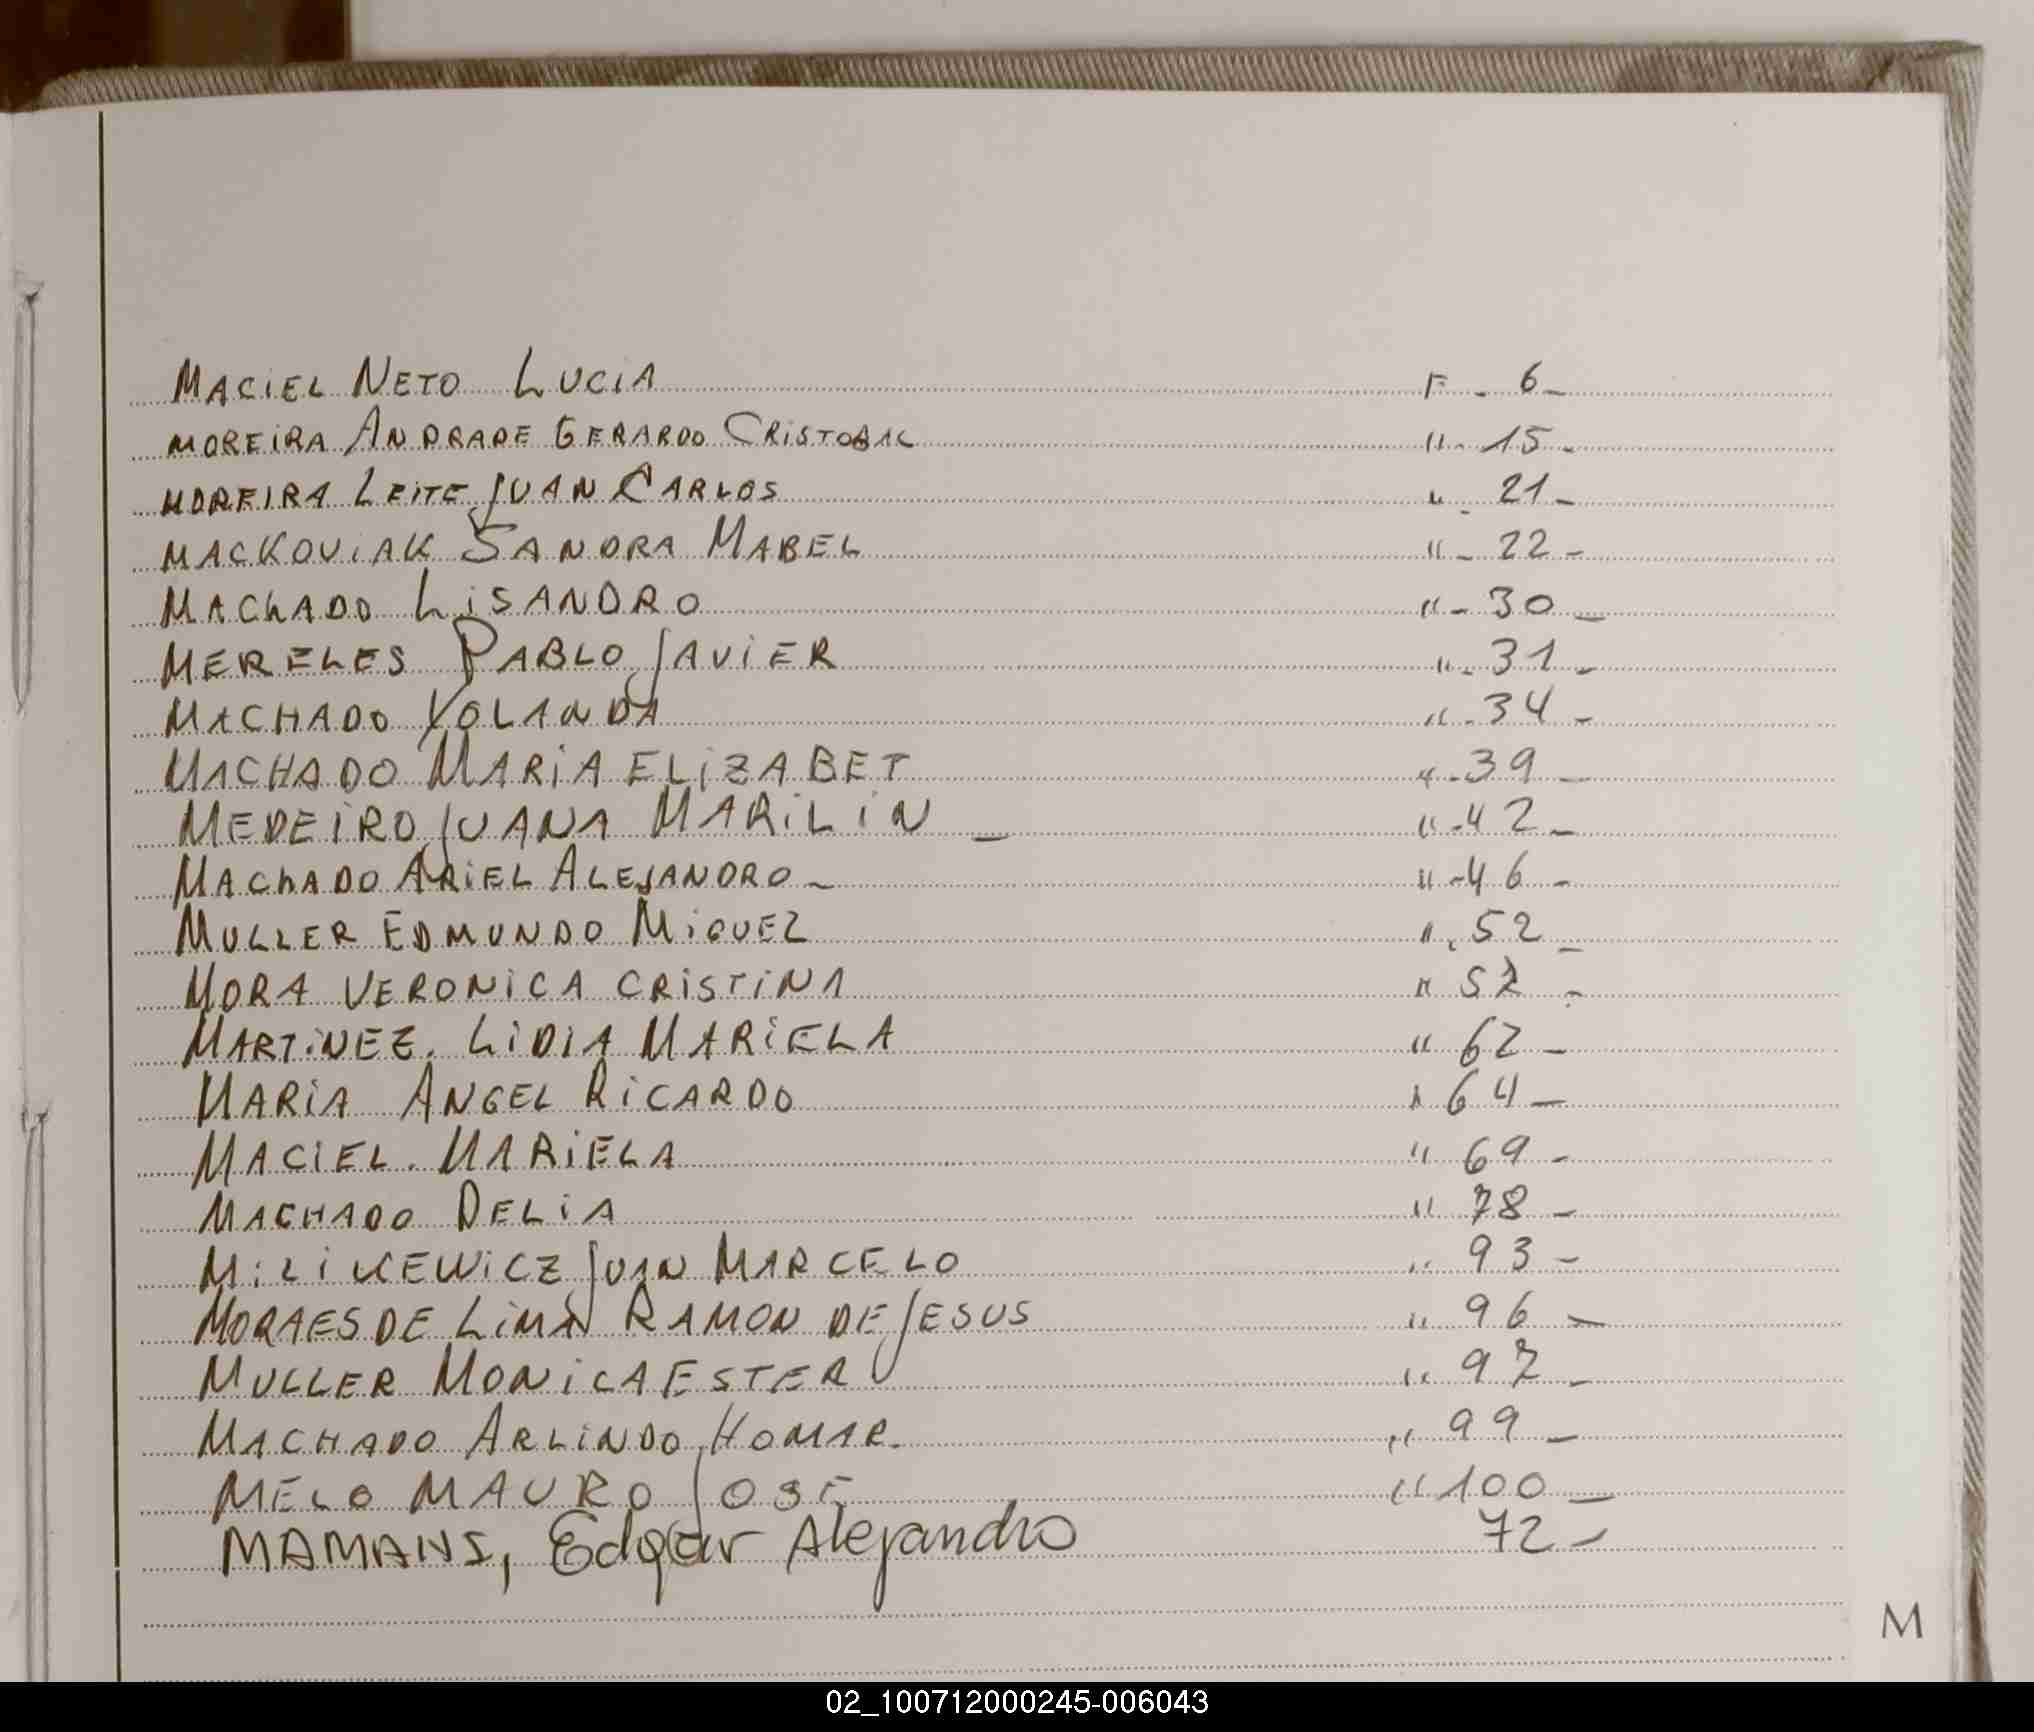 MACIEL NETO LUCIA F - 6 -
MOREIRA ANDRADE GERARDO CRISTOBAL " - 15 -
MOREIRA LEITE JUAN CARLOS " - 21 -
MACKOVIAK SANDRA MABEL " - 22 -
MACHADO LISANDRO " - 30 -
MERELES PABLO JAVIER " - 31 -
MACHADO YOLANDA " - 34 -
MACHADO MARIA ELIZABET " - 39 -
MEDEIRO JUANA MARILIN - " - 42 -
MACHADO ARIEL ALEJANDRO - " - 46 -
MULLER EDMUNDO MIGUEL " . 52 -
MORA VERONICA CRISTINA " 57 -
MARTINEZ. LIDIA MARIELA " 62 -
MARIA ANGEL RICARDO " 64 -
MACIEL. MARIELA " 69 -
MACHADO DELIA " 78 -
MILIKEWICZ JUAN MARCELO " 93 -
MORAES DE LIMA RAMON DE JESUS " 96 -
MULLER MONICA ESTER " 97 -
MACHADO ARLINDO HOMAR. " 99 -
MELO MAURO JOSE " 100 -
MAMANS, Edgar Alejandro 72 -
M
02_100712000245-006043